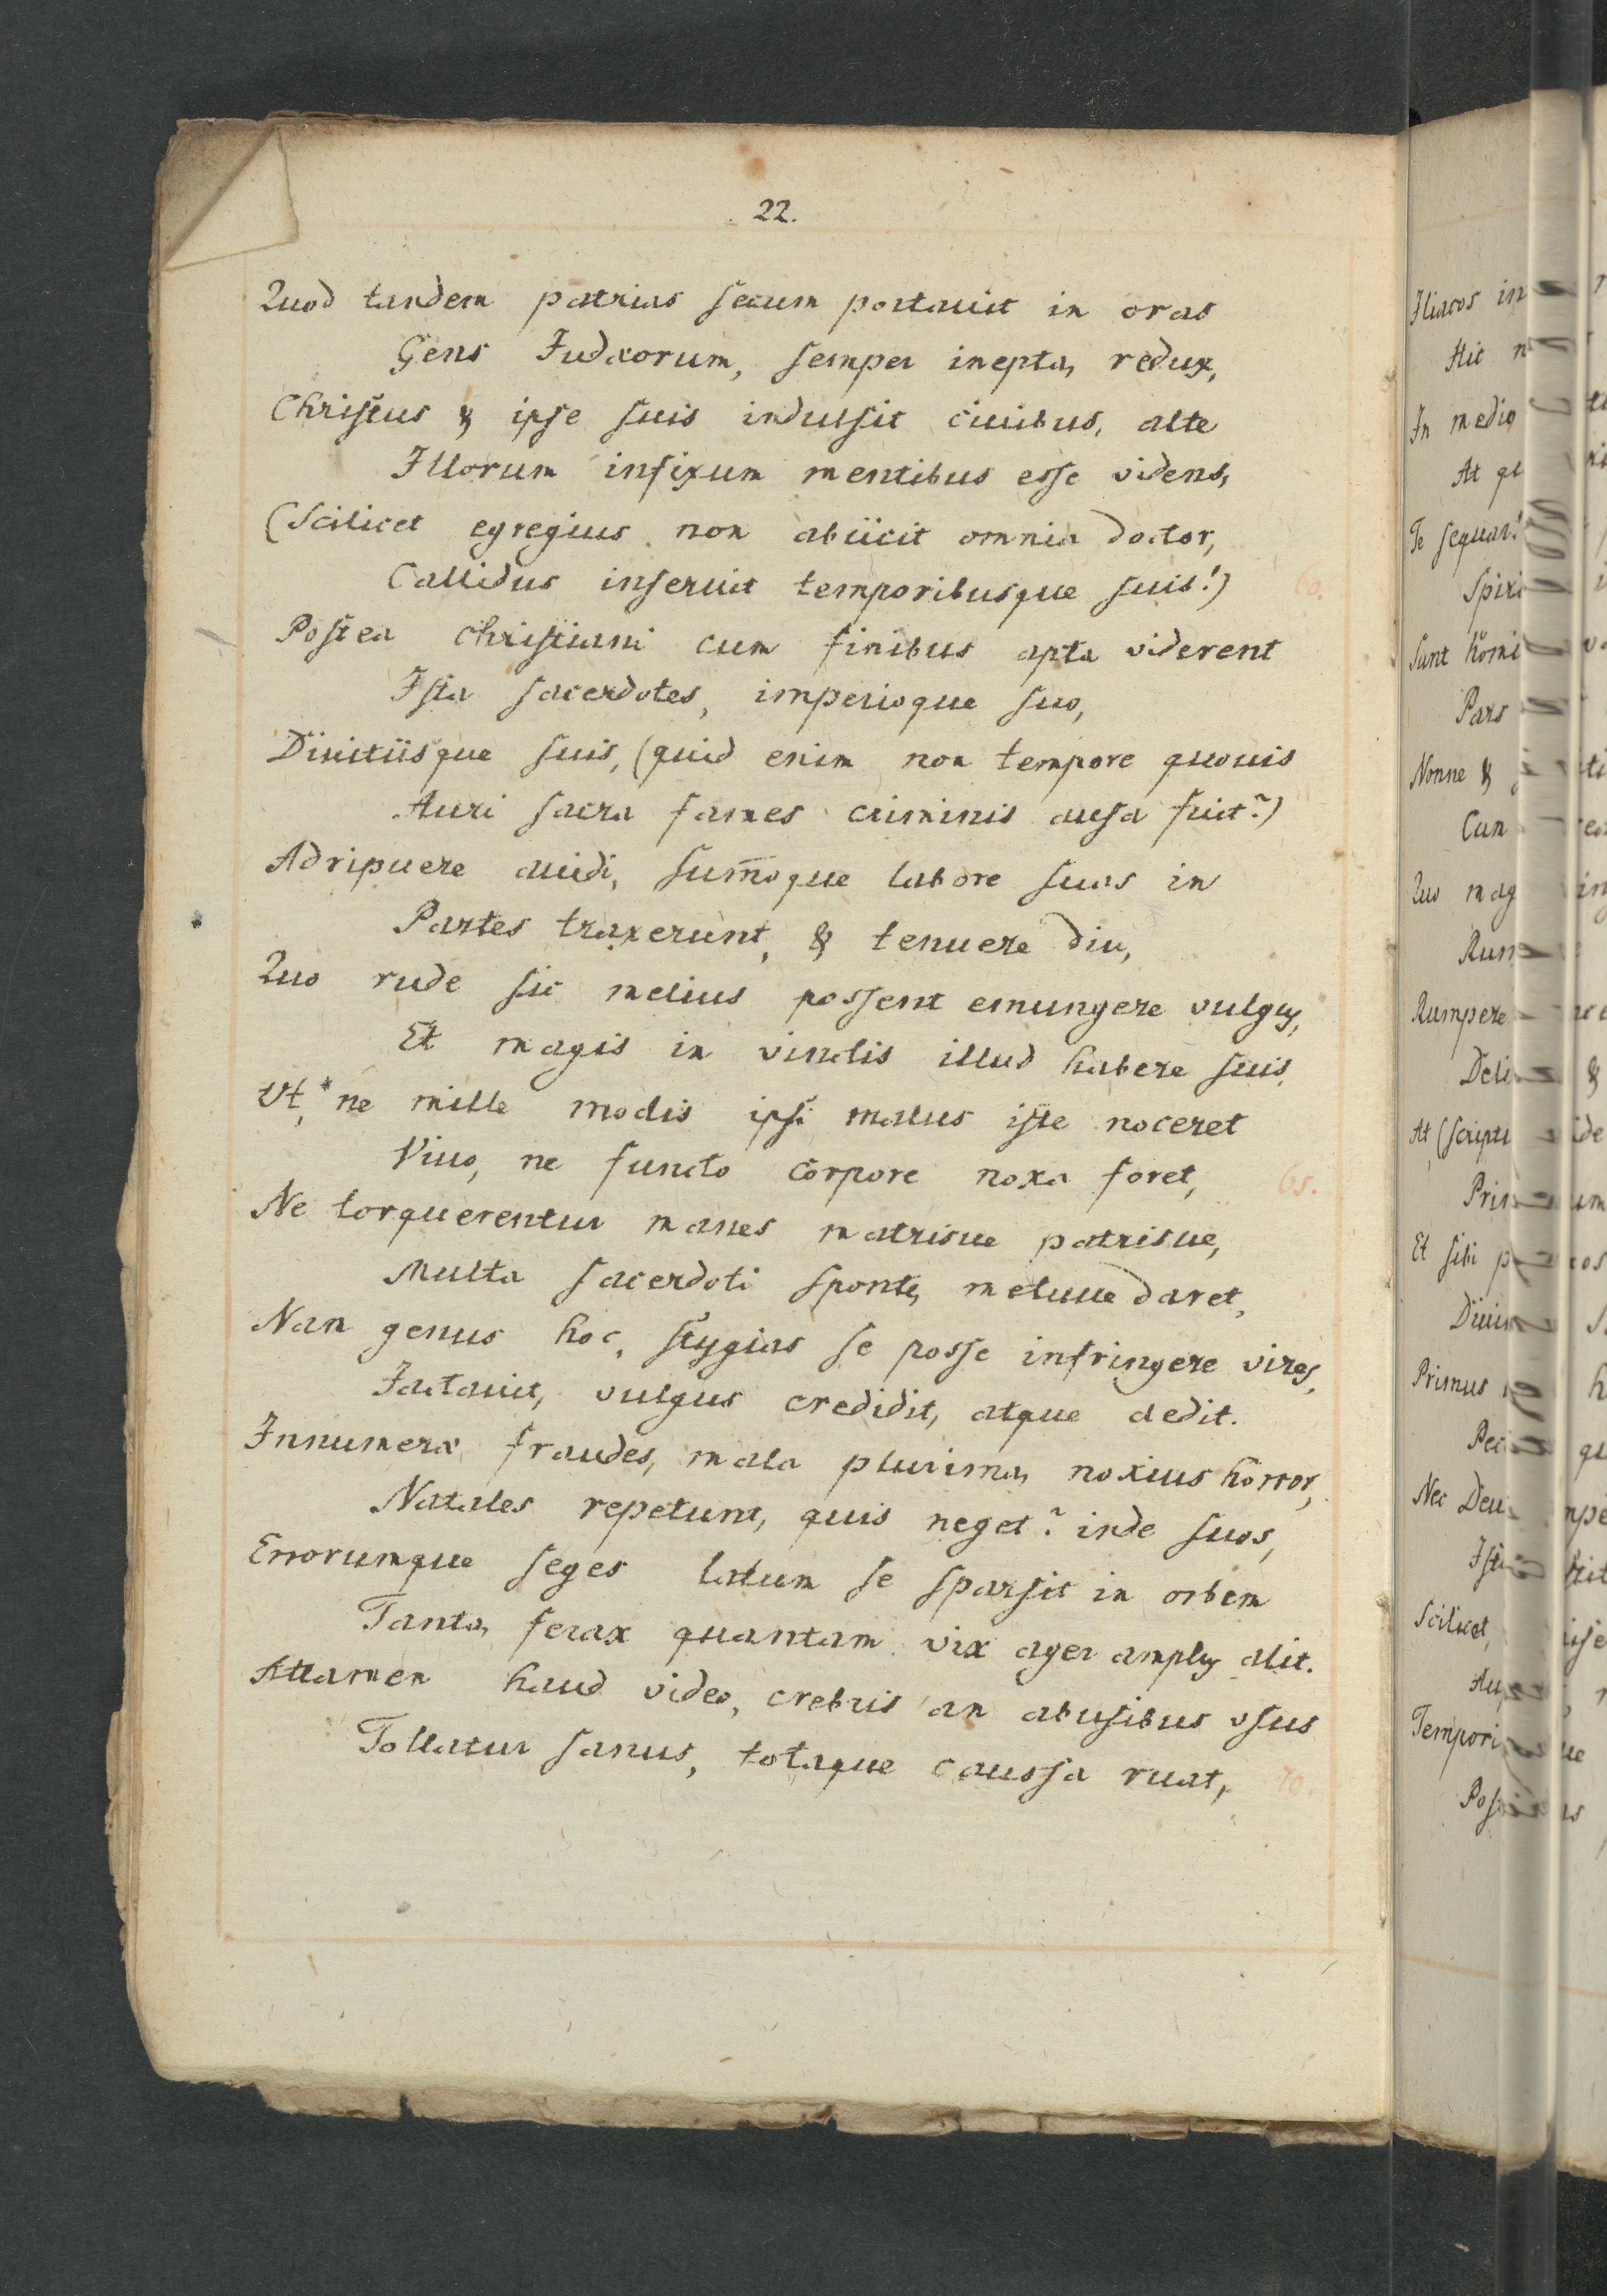 22.
Quod tandem patrias secum portauit in oras
Gens Judæorum, semper inepta, redux,
Christus & ipse suis indulsit ciuibus, alte
Illorum infixum mentibus esse videns,
(Scilicet egregius non abiicit omnia doctor,
Callidus inseruit temporibusque suis!)
60.
Postea Christiani cum finibus apta viderent
Ista sacerdotes, imperioque suo,
Diuitiisque suis, (quid enim non tempore quouis
Auri sacra fames criminis ausa fuit?)
Adripuere auidi, sum̄oque labore suas in
Partes traxerunt, & tenuere diu,
Quo rude sic melius possent emungere vulgus,
Et magis in vinclis illud habere suis.
Vt,* ne mille modis ipsi malus iste noceret
Viuo, ne functo corpore noxa foret,
65.
Ne torquerentur manes matrisue patrisue,
Multa sacerdoti sponte, metuue daret,
Nam genus hoc, stygias se posse infringere vires,
Jactauit, vulgus credidit, atque dedit.
Innumeræ fraudes, mala plurima, noxius horror,
Natales repetunt, quis neget? inde suos,
Errorumque seges latum se sparsit in orbem
Tanta, ferax quantam vix ager amplus alit.
Attamen haud video, crebris an abusibus vsus
Tollatur sanus, totaque caussa ruat,
70.
Iliacos in
Hic
In medio
At
Te sequar!
Sunt homi
Pars
Nonne &
Quo mag
Rumpere
At, (script
Et sibi
Primus
Nec Deu
Scilicet,
Tempori